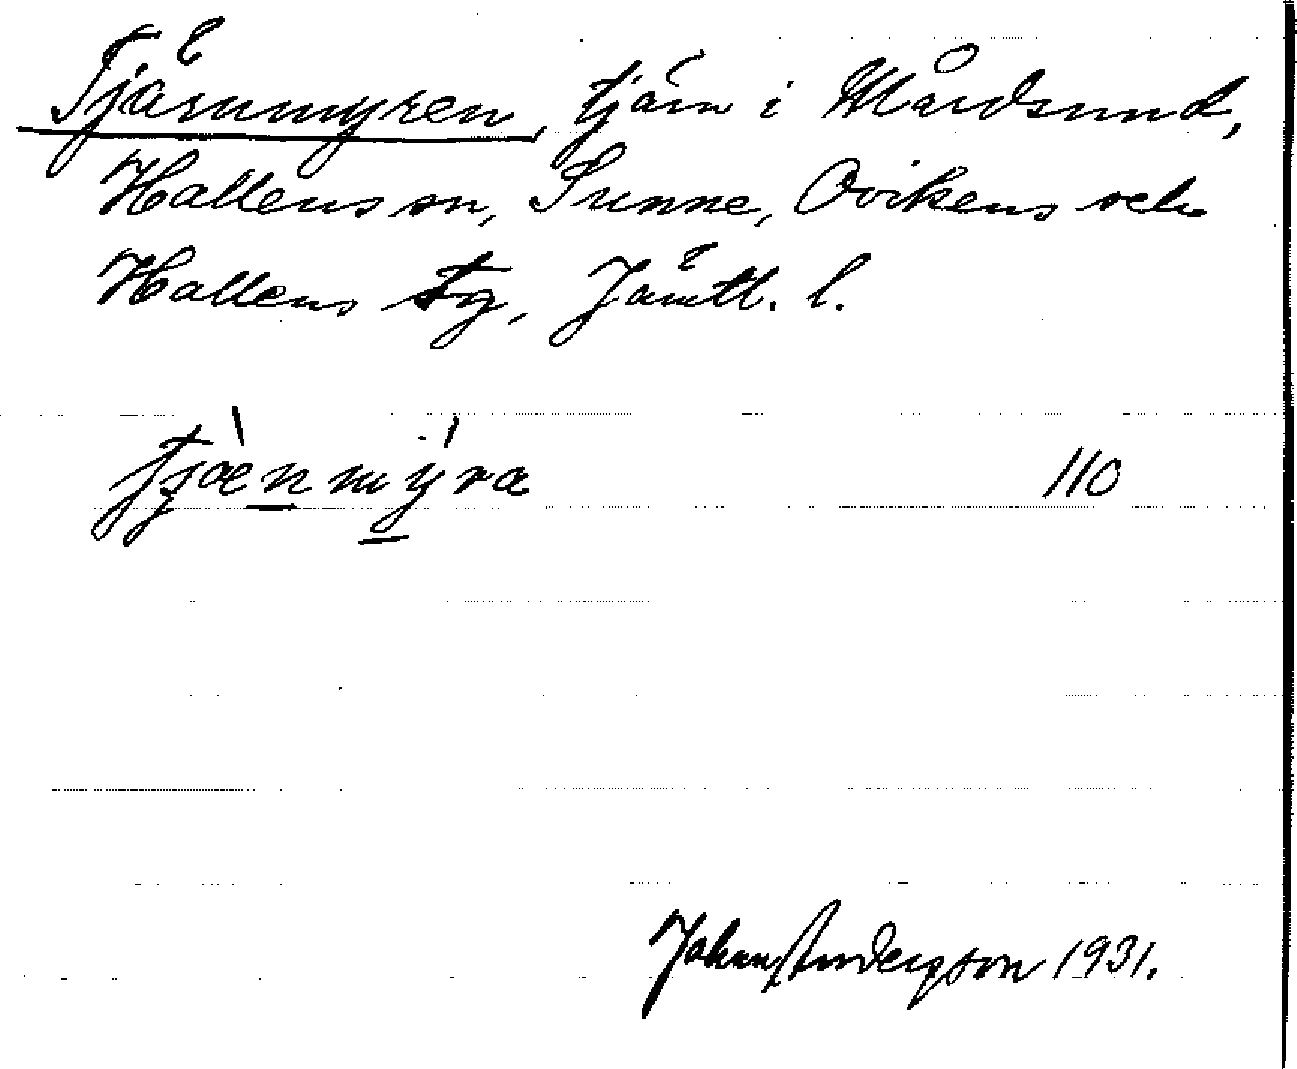 Tjärnmyren, tjärn i Mårdsund,
Hallens sn, Sunne, Ovikens och
Hallens tg, Jämtl. l.
tjæ̀nmýra 110
John Anderson 1931.